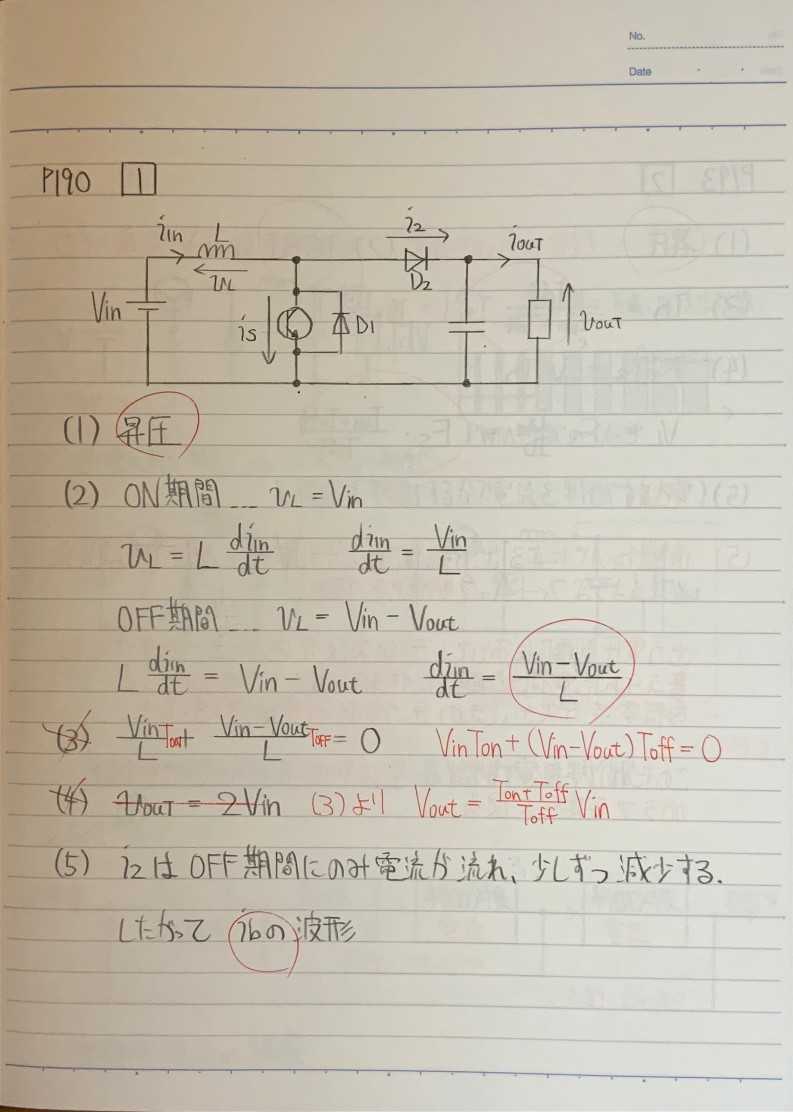 No.
Date
P190 1
iin L i2 iout
vL D2
Vin is D1 vout
(1) 昇圧
(2) ON期間 ... vL = Vin
vL = L diin/dt diin/dt = Vin/L
OFF期間 ... vL = Vin - Vout
L diin/dt = Vin - Vout diin/dt = (Vin-Vout)/L
(3) Vin/L Ton + (Vin-Vout)/L Toff = 0 VinTon + (Vin-Vout)Toff = 0
(4) vout = 2Vin (3)より Vout = (Ton+Toff)/Toff Vin
(5) i2は OFF期間にのみ電流が流れ、少しずつ減少する.
したがって ibの波形